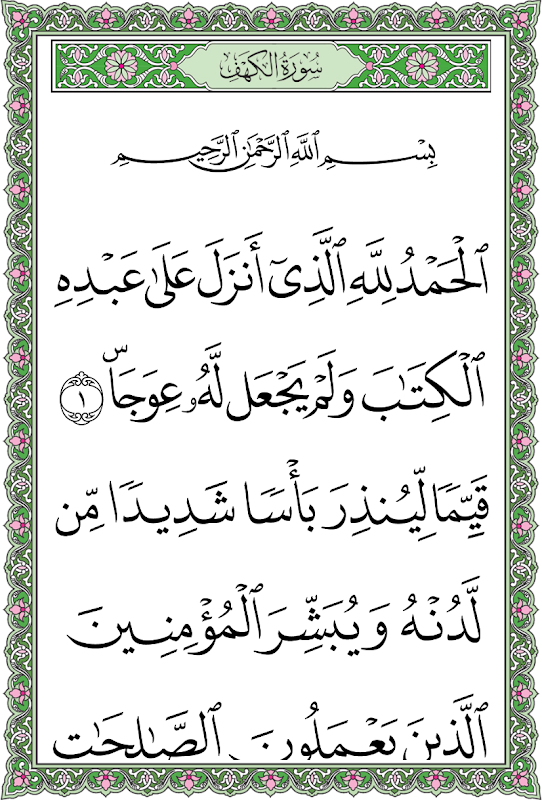 سُورَةُ الكَهْفِ
بِسْمِ ٱللَّهِ ٱلرَّحْمَٰنِ ٱلرَّحِيمِ
ٱلْحَمْدُ لِلَّهِ ٱلَّذِىٓ أَنزَلَ عَلَىٰ عَبْدِهِ
ٱلْكِتَٰبَ وَلَمْ يَجْعَل لَّهُۥ عِوَجَاۜ ١
قَيِّمًا لِّيُنذِرَ بَأْسًا شَدِيدًا مِّن
لَّدُنْهُ وَيُبَشِّرَ ٱلْمُؤْمِنِينَ
ٱلَّذِينَ يَعْمَلُونَ ٱلصَّٰلِحَٰتِ